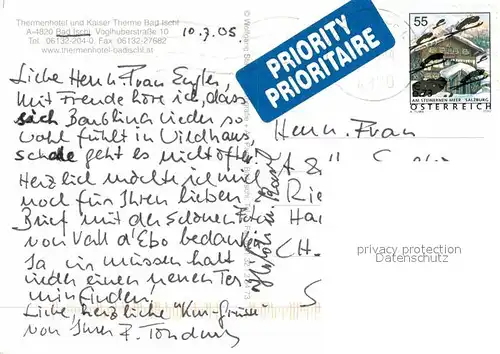 Thermenhotel und Kaiser Therme Bad Ischl
A-4820 Bad Ischl, Voglhuberstraße 10
Tel. 06132-204-0 Fax. 06132-27682
www.thermenhotel-badischl.at
10.3.05
PRIORITY
PRIORITAIRE
55
AM STEINERNEN MEER SALZBURG
ÖSTERREICH
Liebe Herrn. Frau
mit Freude höre ich, dass
sich wieder so
wohl fühlt in Wildhaus,
schade geht es nicht öfter.
Herzlich möchte ich mich
noch für Ihren lieben
Brief mit den schönen Fotos
von Vall d'Ebo bedanken
Ja, wir müssen halt
wieder einen neuen Ter
min finden!
Liebe, herzliche "Kur-Grüsse"
von Ihrer
Herrn. Frau
Rie
Ha
CH-
privacy protection
Datenschutz